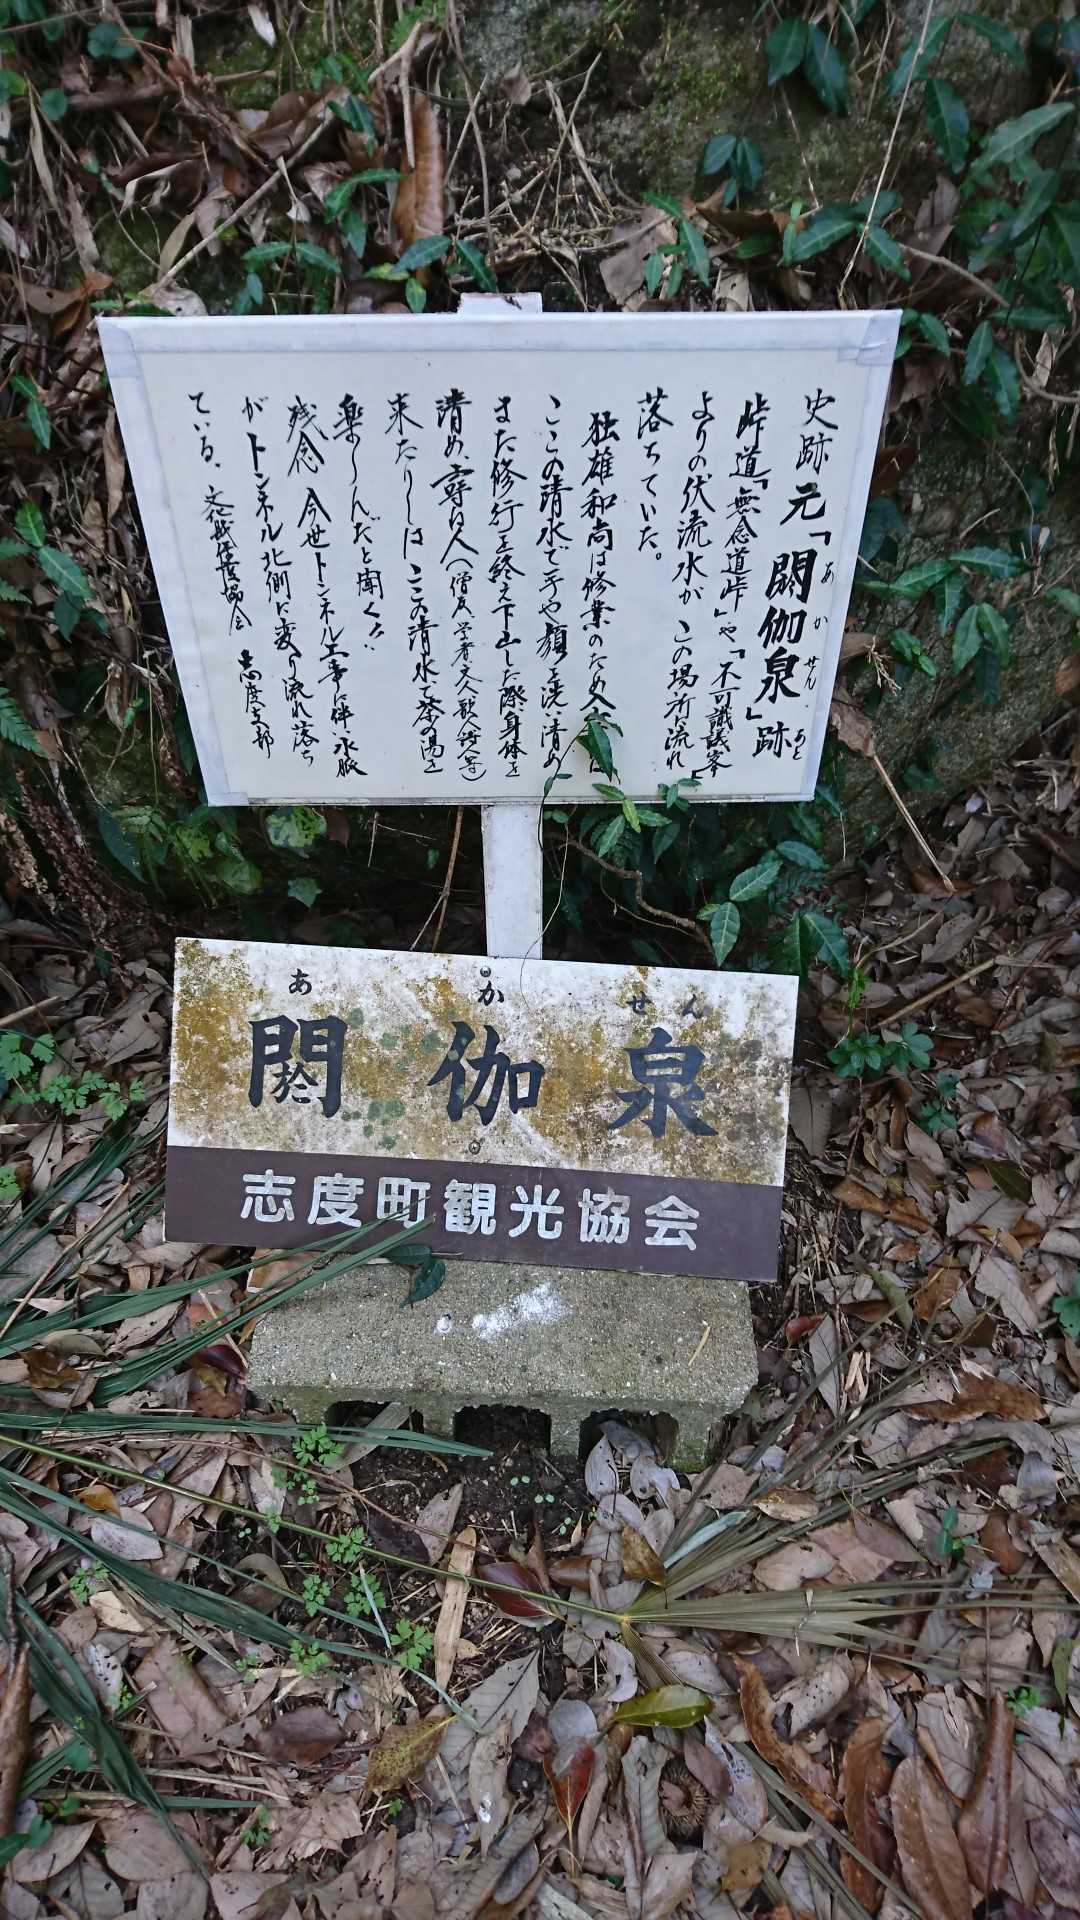 史跡 元「閼伽泉」跡
あ か せん あと
峠道「無念道峠」や「不可議議峯」
よりの伏流水が この場所に流れ
落ちていた。
独雄和尚は修業のため入
ここの清水で手や顔を洗い清め
また修行を終え下山した際、身体を
清め、尋ね人(僧友、学者、文人、歌人、詩人等)
来たりしは この清水で茶の湯を
楽しんだと聞くが
残念 今世トンネル工事に伴い水脈
がトンネル北側に変り流れ落ち
ている。 文化財保護協会 志度支部
あ か せん
閼 伽 泉
志度町観光協会